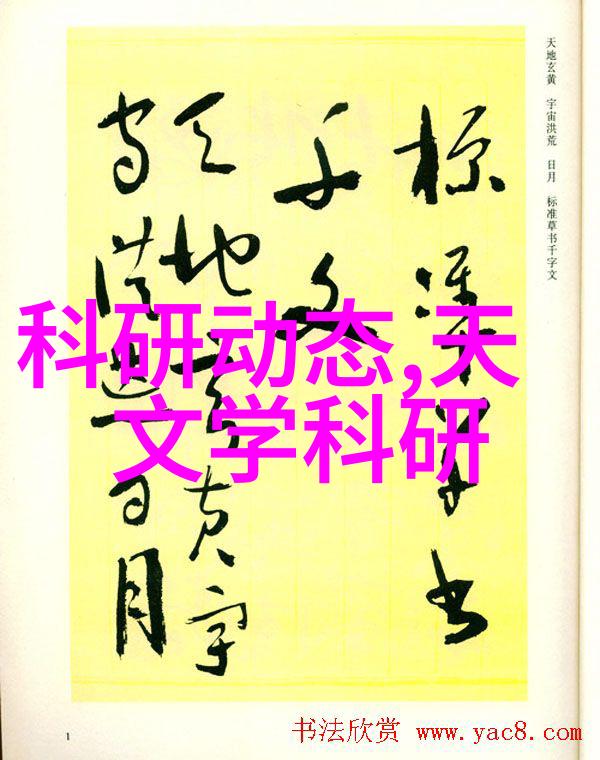 天地玄黄 宇宙洪荒 日月 标准草书千字文
標準草書
千文
天地玄黄宇
宙洪荒日月
科研动态,天
文学科研
1
书法欣赏 www.yac8.com